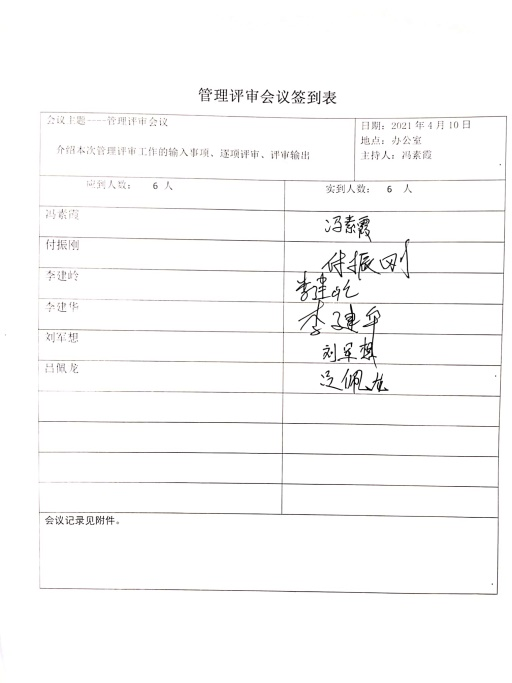 管理评审会议签到表
会议主题——管理评审会议
介绍本次管理评审工作的输入事项、逐项评审、评审输出
日期：2021 年 4 月 10 日
地点：办公室
主持人：冯素霞
应到人数： 6 人
实到人数： 6 人
冯素霞
冯素霞
付振刚
付振刚
李建岭
李建岭
李建华
李建华
刘军想
刘军想
吕佩龙
吕佩龙
会议记录见附件。